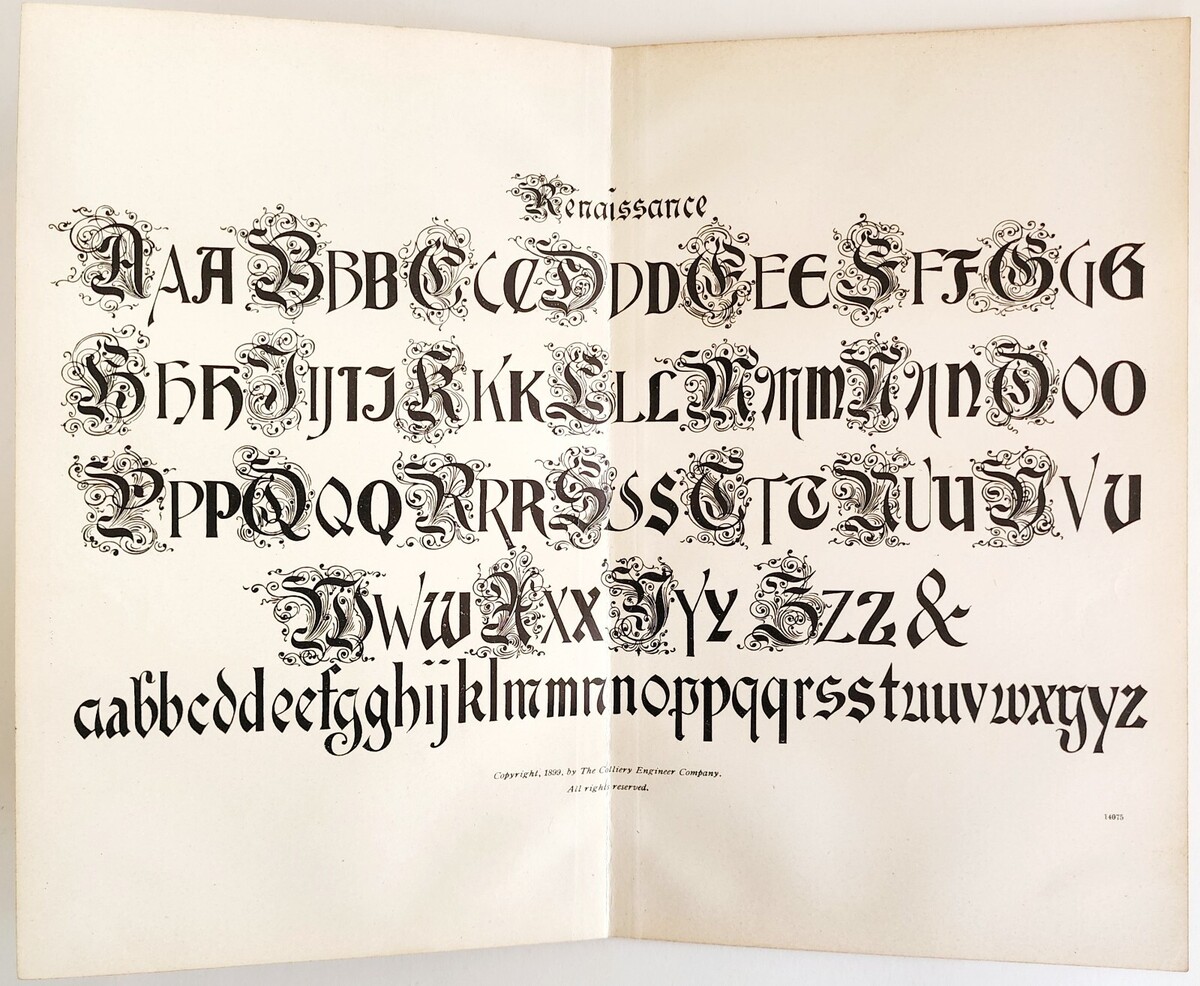 Renaissance
AAABBBCCCDDDEEEFFFGGG
HHHIIJIJKKKLLLMMMNNNOOO
PPPQQQRRRSSSTTTUUUVVV
WWWXXXYYYZZZ&
aabbcddeefgghijklmmnnoppqqrsstuuvwxyyz
Copyright, 1899, by The Colliery Engineer Company.
All rights reserved.
14075